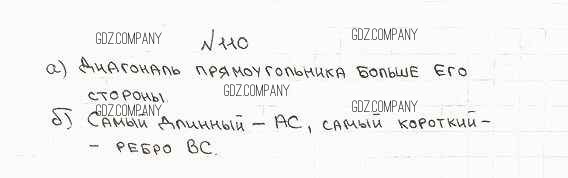 GDZ.COMPANY
№110
а) Диагональ прямоугольника больше его
стороны.
GDZ.COMPANY
GDZ.COMPANY
GDZ.COMPANY
б) Самый длинный – АС, самый короткий –
– ребро ВС.